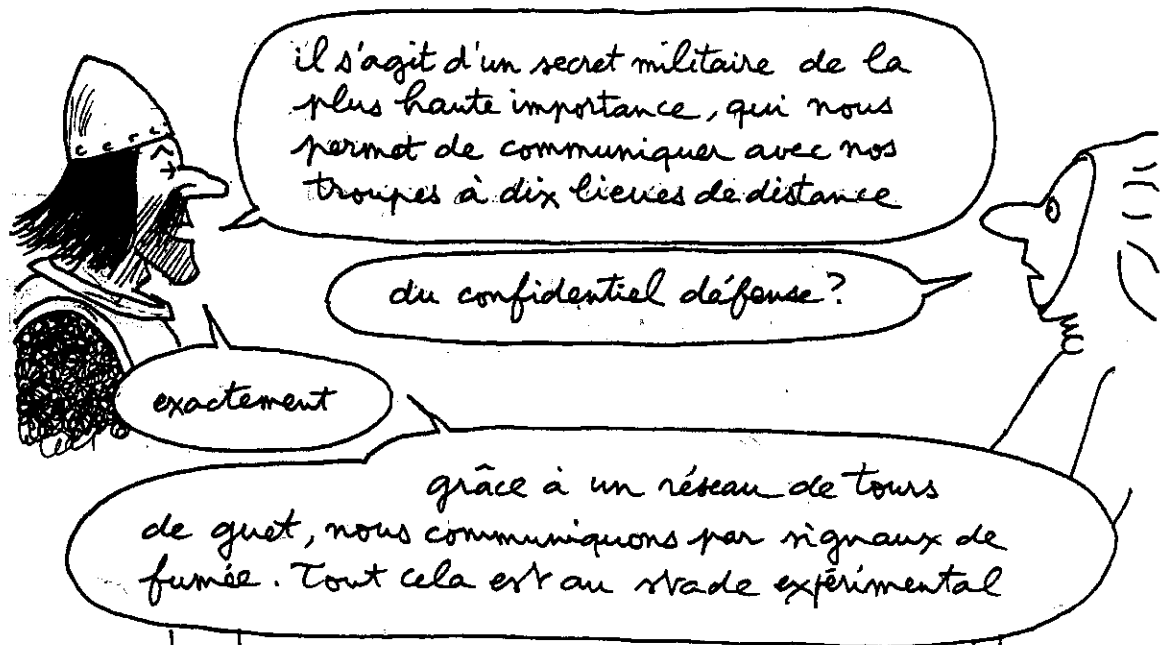 il s'agit d'un secret militaire de la
plus haute importance, qui nous
permet de communiquer avec nos
troupes à dix lieues de distance
du confidentiel défense?
exactement
grâce à un réseau de tours
de guet, nous communiquons par signaux de
fumée. Tout cela est au stade expérimental